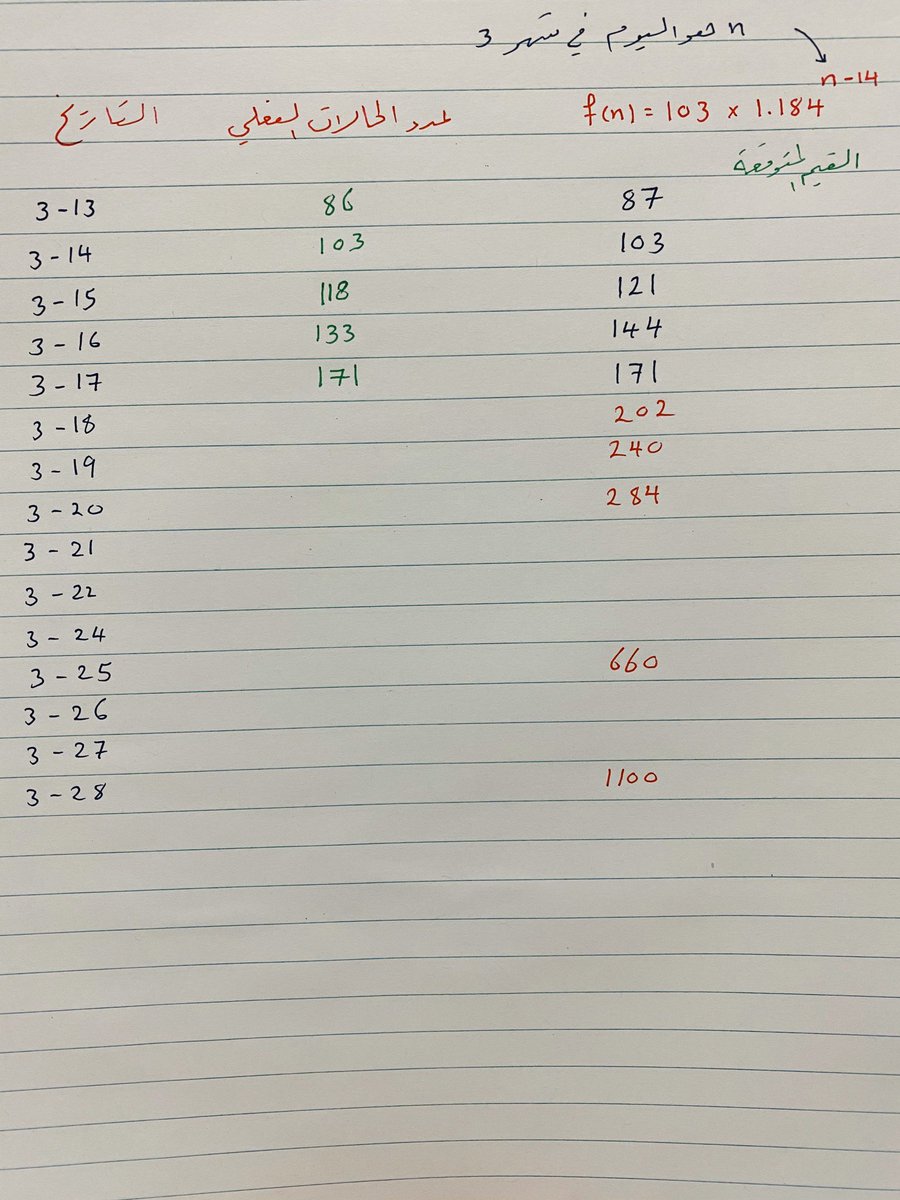 n هو اليوم في شهر 3
التاريخ عدد الحالات الفعلي f(n) = 103 x 1.184^n-14
القيم المتوقعة
3-13 86 87
3-14 103 103
3-15 118 121
3-16 133 144
3-17 171 171
3-18 202
3-19 240
3-20 284
3-21
3-22
3-24
3-25 660
3-26
3-27
3-28 1100